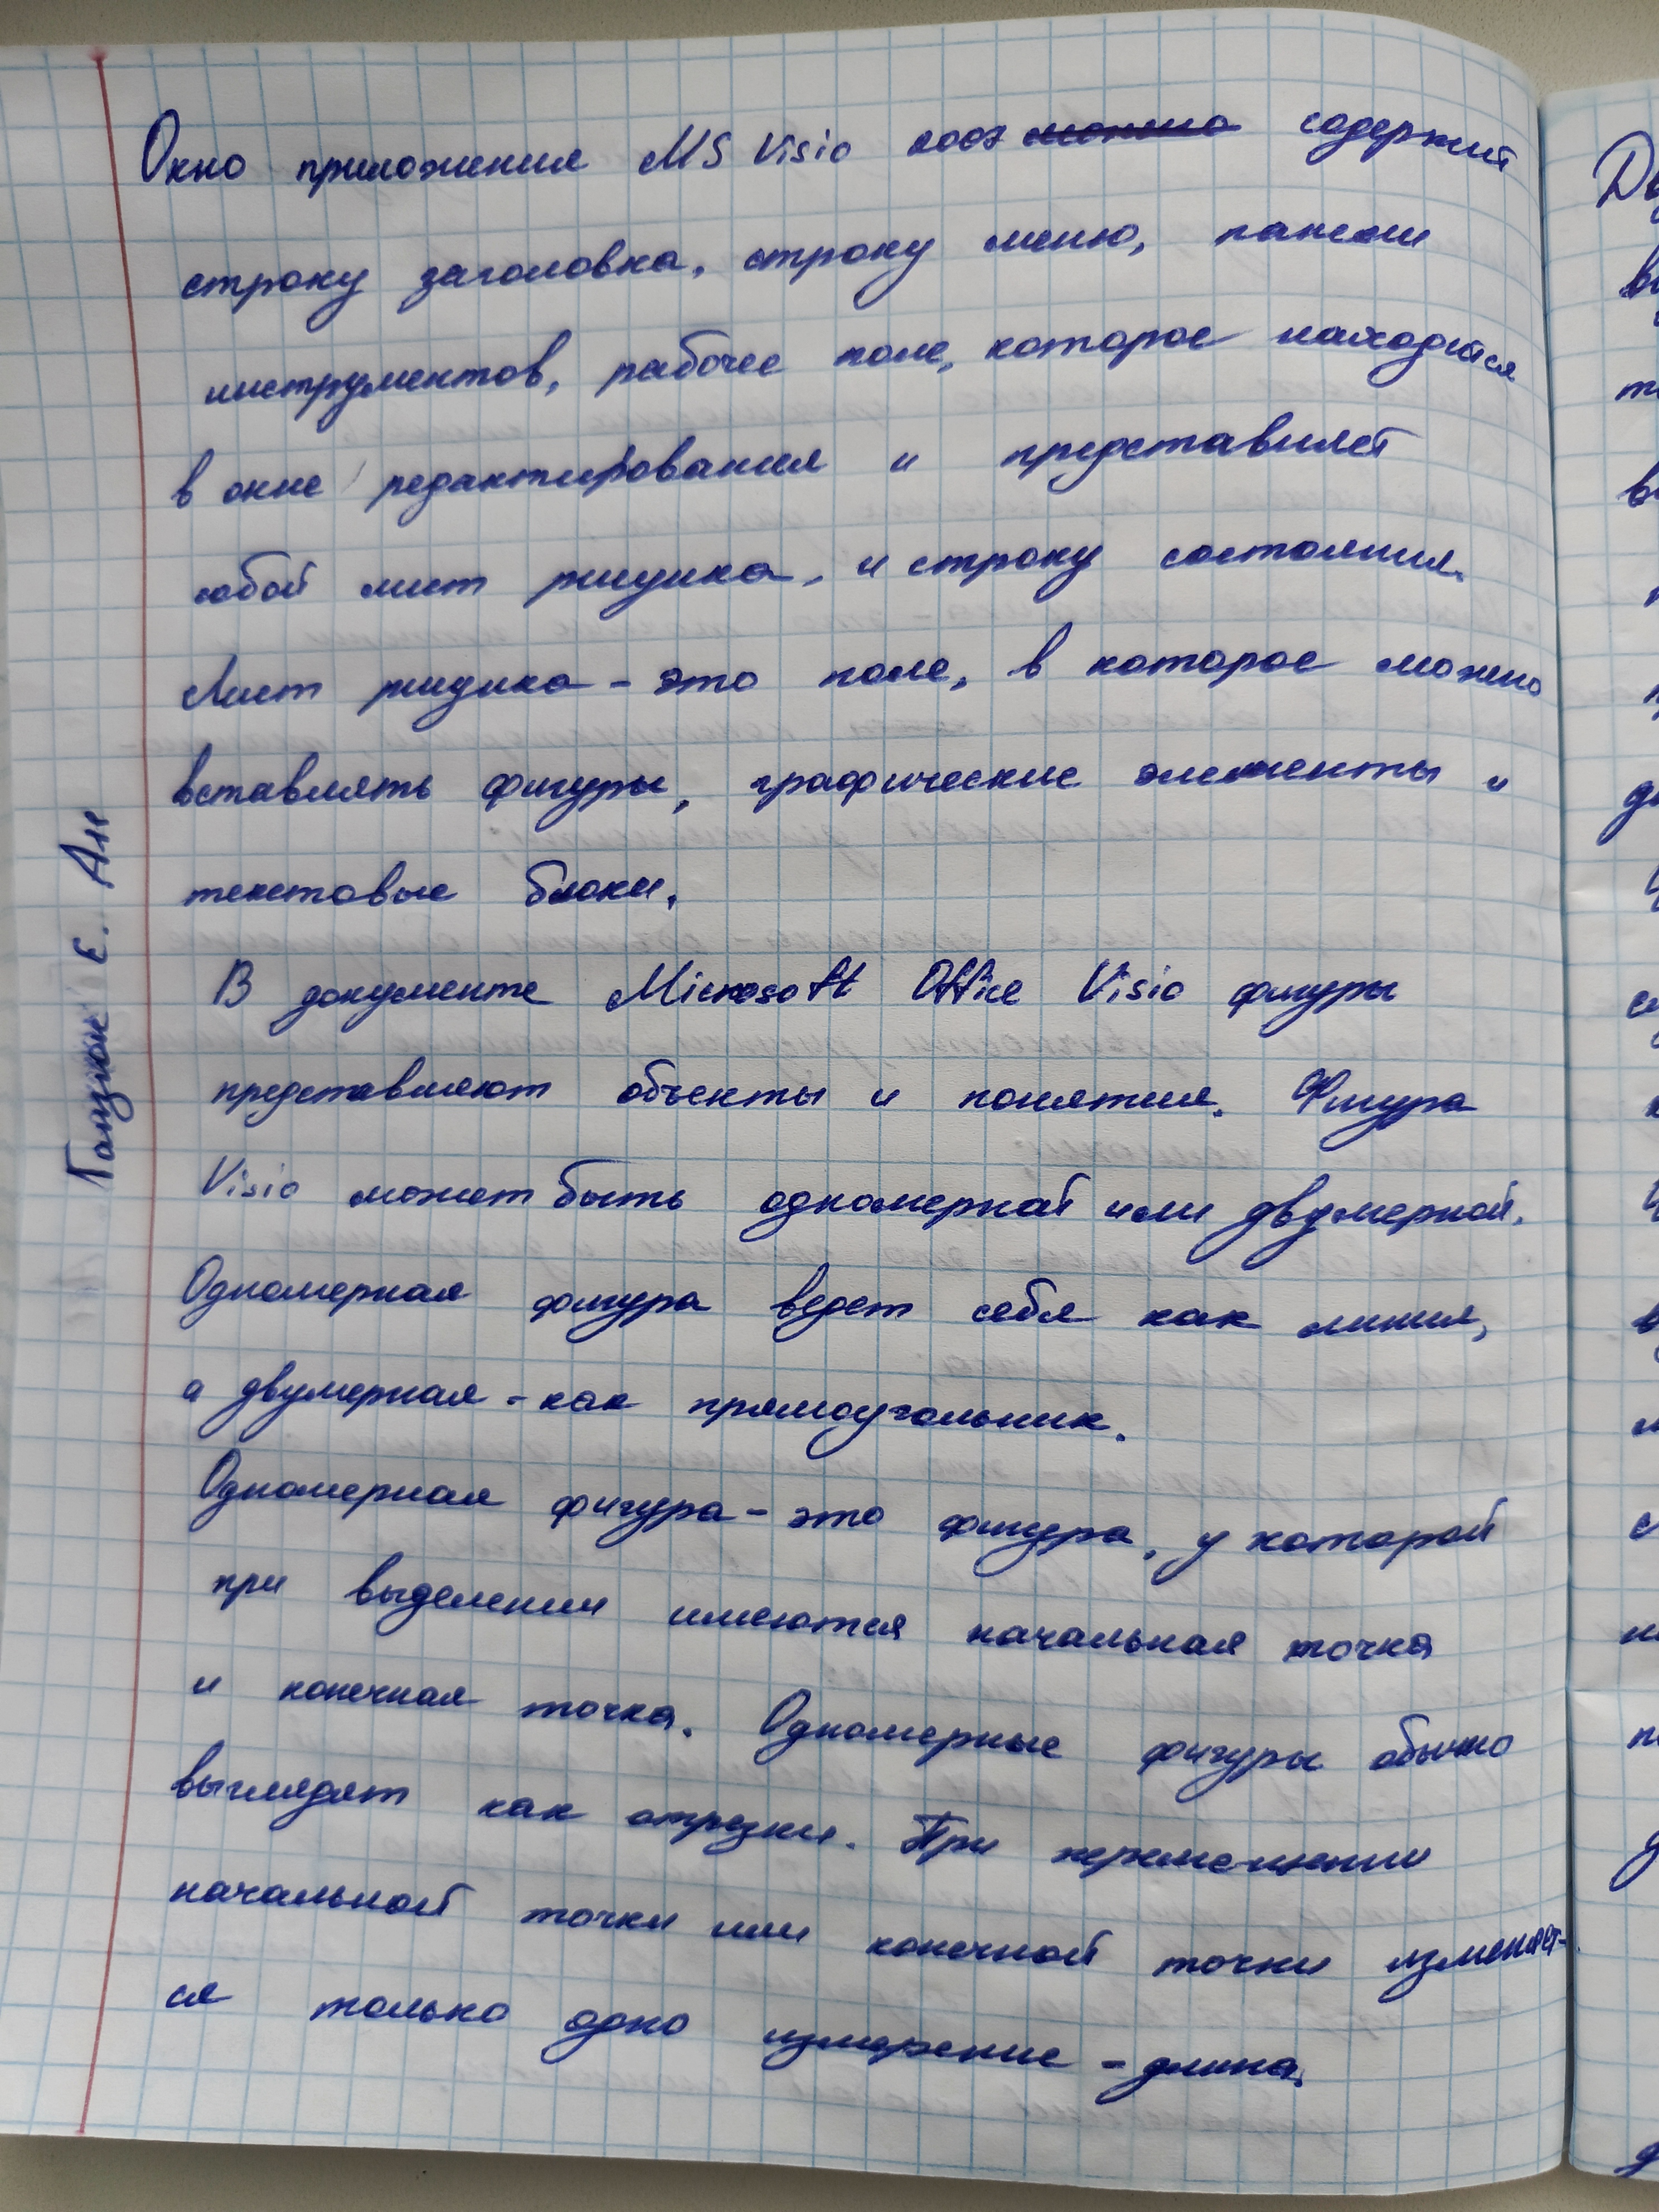 Окно приложения MS Visio 2007 содержит
строку заголовка, строку меню, панели
инструментов, рабочее поле, которое находится
в окне редактирования и представляет
собой лист рисунка, и строку состояния.
Лист рисунка - это поле, в которое можно
вставлять фигуры, графические элементы и
текстовые блоки.
В документе Microsoft Office Visio фигуры
представляют объекты и понятия. Фигура
Visio может быть одномерной или двумерной.
Одномерная фигура ведет себя как линия,
а двумерная - как прямоугольник.
Одномерная фигура - это фигура, у которой
при выделении имеются начальная точка
и конечная точка. Одномерные фигуры обычно
выглядят как отрезки. При перемещении
начальной точки или конечной точки изменяет-
ся только одно измерение - длина.